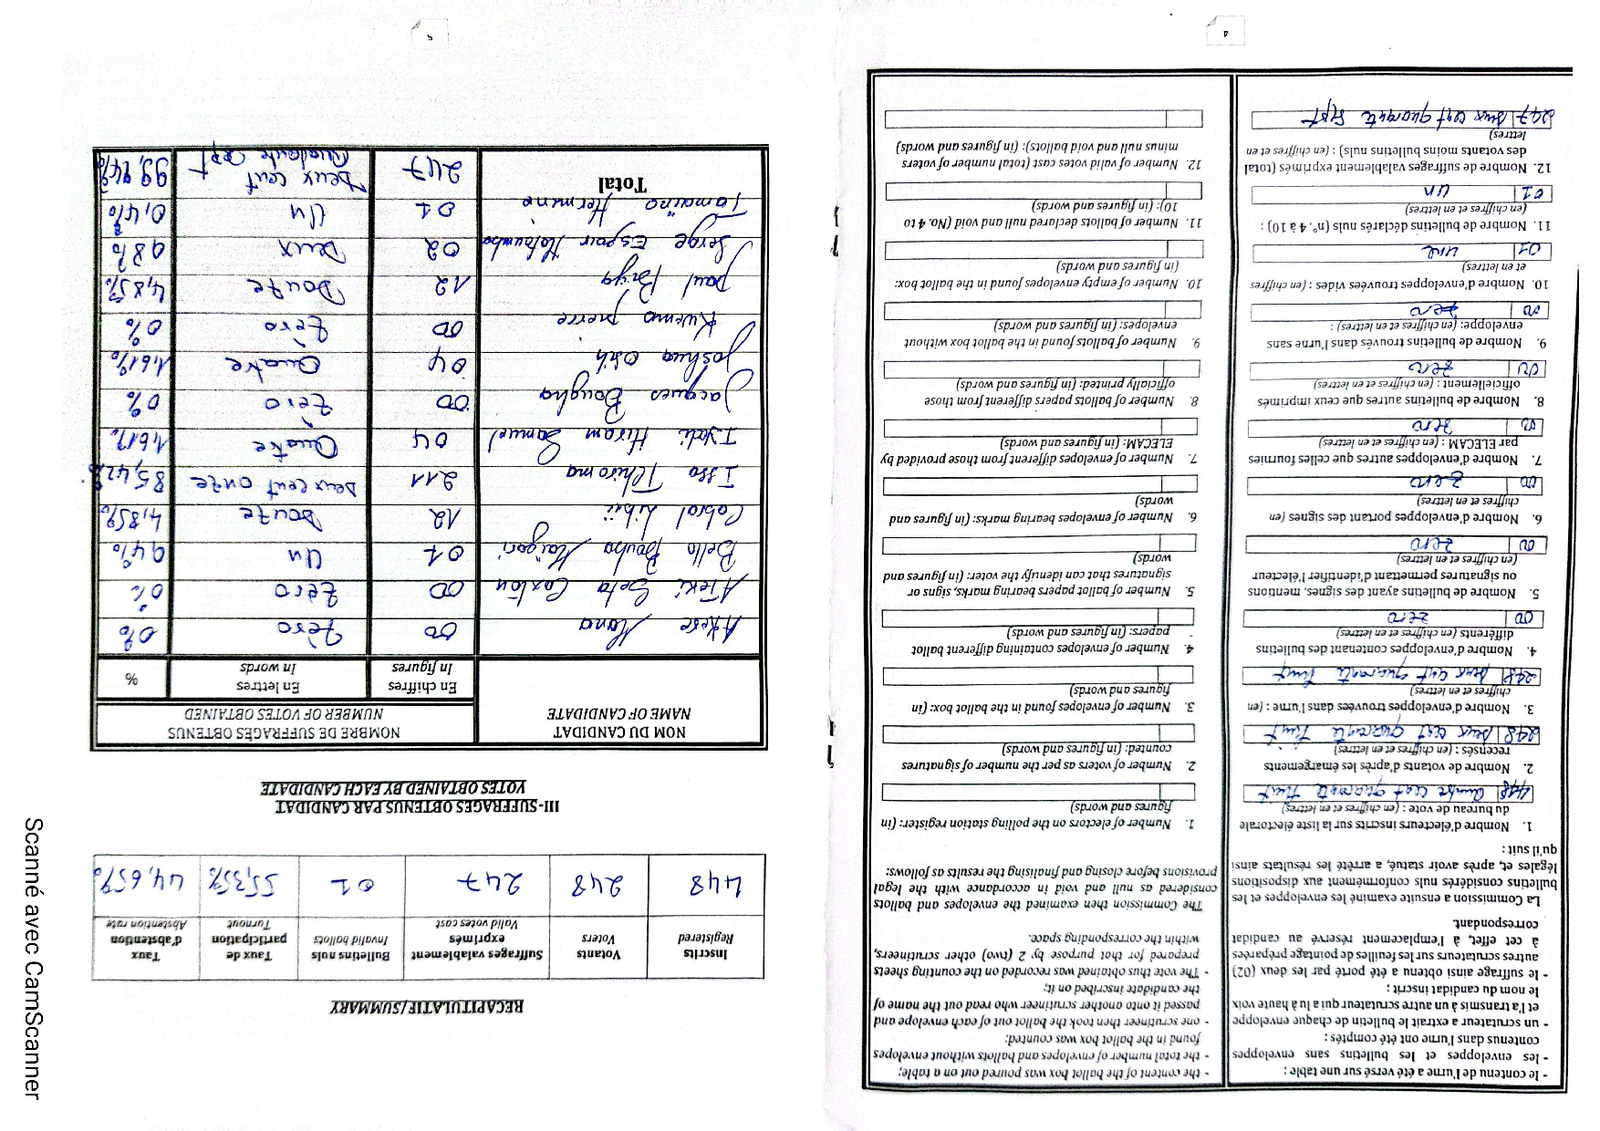 4
- le contenu de l'urne a été versé sur une table ;
- les enveloppes et les bulletins sans enveloppes
contenus dans l'urne ont été comptés ;
- un scrutateur a extrait le bulletin de chaque enveloppe
et l'a transmis à un autre scrutateur qui a lu à haute voix
le nom du candidat inscrit ;
- le suffrage ainsi obtenu a été porté par les deux (02)
autres scrutateurs sur les feuilles de pointage préparées
à cet effet, à l'emplacement réservé au candidat
correspondant.
La Commission a ensuite examiné les enveloppes et les
bulletins considérés nuls conformément aux dispositions
légales et, après avoir statué, a arrêté les résultats ainsi
qu'il suit :
1. Nombre d'électeurs inscrits sur la liste électorale
du bureau de vote : (en chiffres et en lettres)
448 quatre cent quarante huit
2. Nombre de votants d'après les émargements
recensés : (en chiffres et en lettres)
248 deux cent quarante huit
3. Nombre d'enveloppes trouvées dans l'urne : (en
chiffres et en lettres)
248 deux cent quarante huit
4. Nombre d'enveloppes contenant des bulletins
différents (en chiffres et en lettres)
00 zero
5. Nombre de bulletins ayant des signes, mentions
ou signatures permettant d'identifier l'électeur
(en chiffres et en lettres)
00 zero
6. Nombre d'enveloppes portant des signes (en
chiffres et en lettres)
00 zero
7. Nombre d'enveloppes autres que celles fournies
par ELECAM : (en chiffres et en lettres)
00 zero
8. Nombre de bulletins autres que ceux imprimés
officiellement : (en chiffres et en lettres)
00 zero
9. Nombre de bulletins trouvés dans l'urne sans
enveloppe: (en chiffres et en lettres) :
00 zero
10. Nombre d'enveloppes trouvées vides : (en chiffres
et en lettres)
01 une
11. Nombre de bulletins déclarés nuls (n°. 4 à 10) :
(en chiffres et en lettres)
01 un
12. Nombre de suffrages valablement exprimés (total
des votants moins bulletins nuls) : (en chiffres et en
lettres)
247 deux cent quarante sept
- the content of the ballot box was poured out on a table;
- the total number of envelopes and ballots without envelopes
found in the ballot box was counted;
- one scrutineer then took the ballot out of each envelope and
passed it onto another scrutineer who read out the name of
the candidate inscribed on it;
- The vote thus obtained was recorded on the counting sheets
prepared for that purpose by 2 (two) other scrutineers,
within the corresponding space.
The Commission then examined the envelopes and ballots
considered as null and void in accordance with the legal
provisions before closing and finalising the results as follows:
1. Number of electors on the polling station register: (in
figures and words)
2. Number of voters as per the number of signatures
counted: (in figures and words)
3. Number of envelopes found in the ballot box: (in
figures and words)
4. Number of envelopes containing different ballot
papers: (in figures and words)
5. Number of ballot papers bearing marks, signs or
signatures that can identify the voter: (in figures and
words)
6. Number of envelopes bearing marks: (in figures and
words)
7. Number of envelopes different from those provided by
ELECAM: (in figures and words)
8. Number of ballots papers different from those
officially printed: (in figures and words)
9. Number of ballots found in the ballot box without
envelopes: (in figures and words)
10. Number of empty envelopes found in the ballot box:
(in figures and words)
11. Number of ballots declared null and void (No. 4 to
10): (in figures and words)
12. Number of valid votes cast (total number of voters
minus null and void ballots): (in figures and words)
5
RECAPITULATIF/SUMMARY
Inscrits Registered | Votants Voters | Bulletins nuls Invalid ballots | Suffrages valablement exprimés Valid votes cast | Taux de participation Turnout | Taux d'abstention Abstention rate
448 | 248 | 247 | 01 | 55,35% | 44,65%
III- SUFFRAGES OBTENUS PAR CANDIDAT
VOTES OBTAINED BY EACH CANDIDATE
NOM DU CANDIDAT | NOMBRE DE SUFFRAGES OBTENUS
NAME OF CANDIDATE | NUMBER OF VOTES OBTAINED
En chiffres | En lettres | %
In figures | In words
Akere Muna 00 Zéro 0%
Ateki Seta Caxton 00 Zéro 0%
Bello Bouba Maigari 01 Un 0,4%
Cabral Libii 12 Douze 4,85%
Issa Tchiroma 211 Deux cent onze 85,42%
Iyodi Hiram Samuel 04 Quatre 1,61%
Jacques Bougha 00 Zéro 0%
Joshua Osih 04 Quatre 1,61%
Kwemo Pierre 00 Zéro 0%
Paul Biya 12 Douze 4,85%
Serge Espoir Matomba 02 Deux 0,8%
Tomaïno Hermine 01 Un 0,4%
Total 247 Deux cent Quarante Sept 99,94%
Scanné avec CamScanner